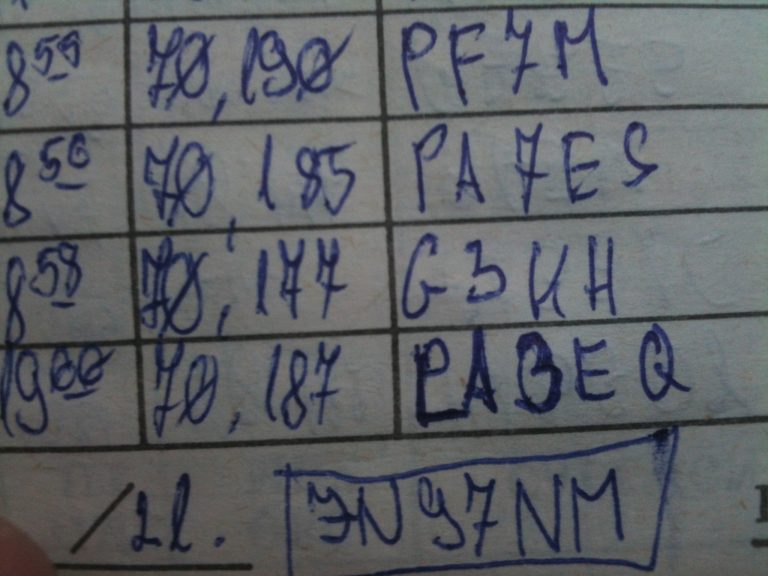 8⁵⁵ 70,190 PF7M
8⁵⁶ 70,185 PA7ES
8⁵⁸ 70,177 G3KH
19⁰⁰ 70,187 PA3EQ
/21. JN97NM